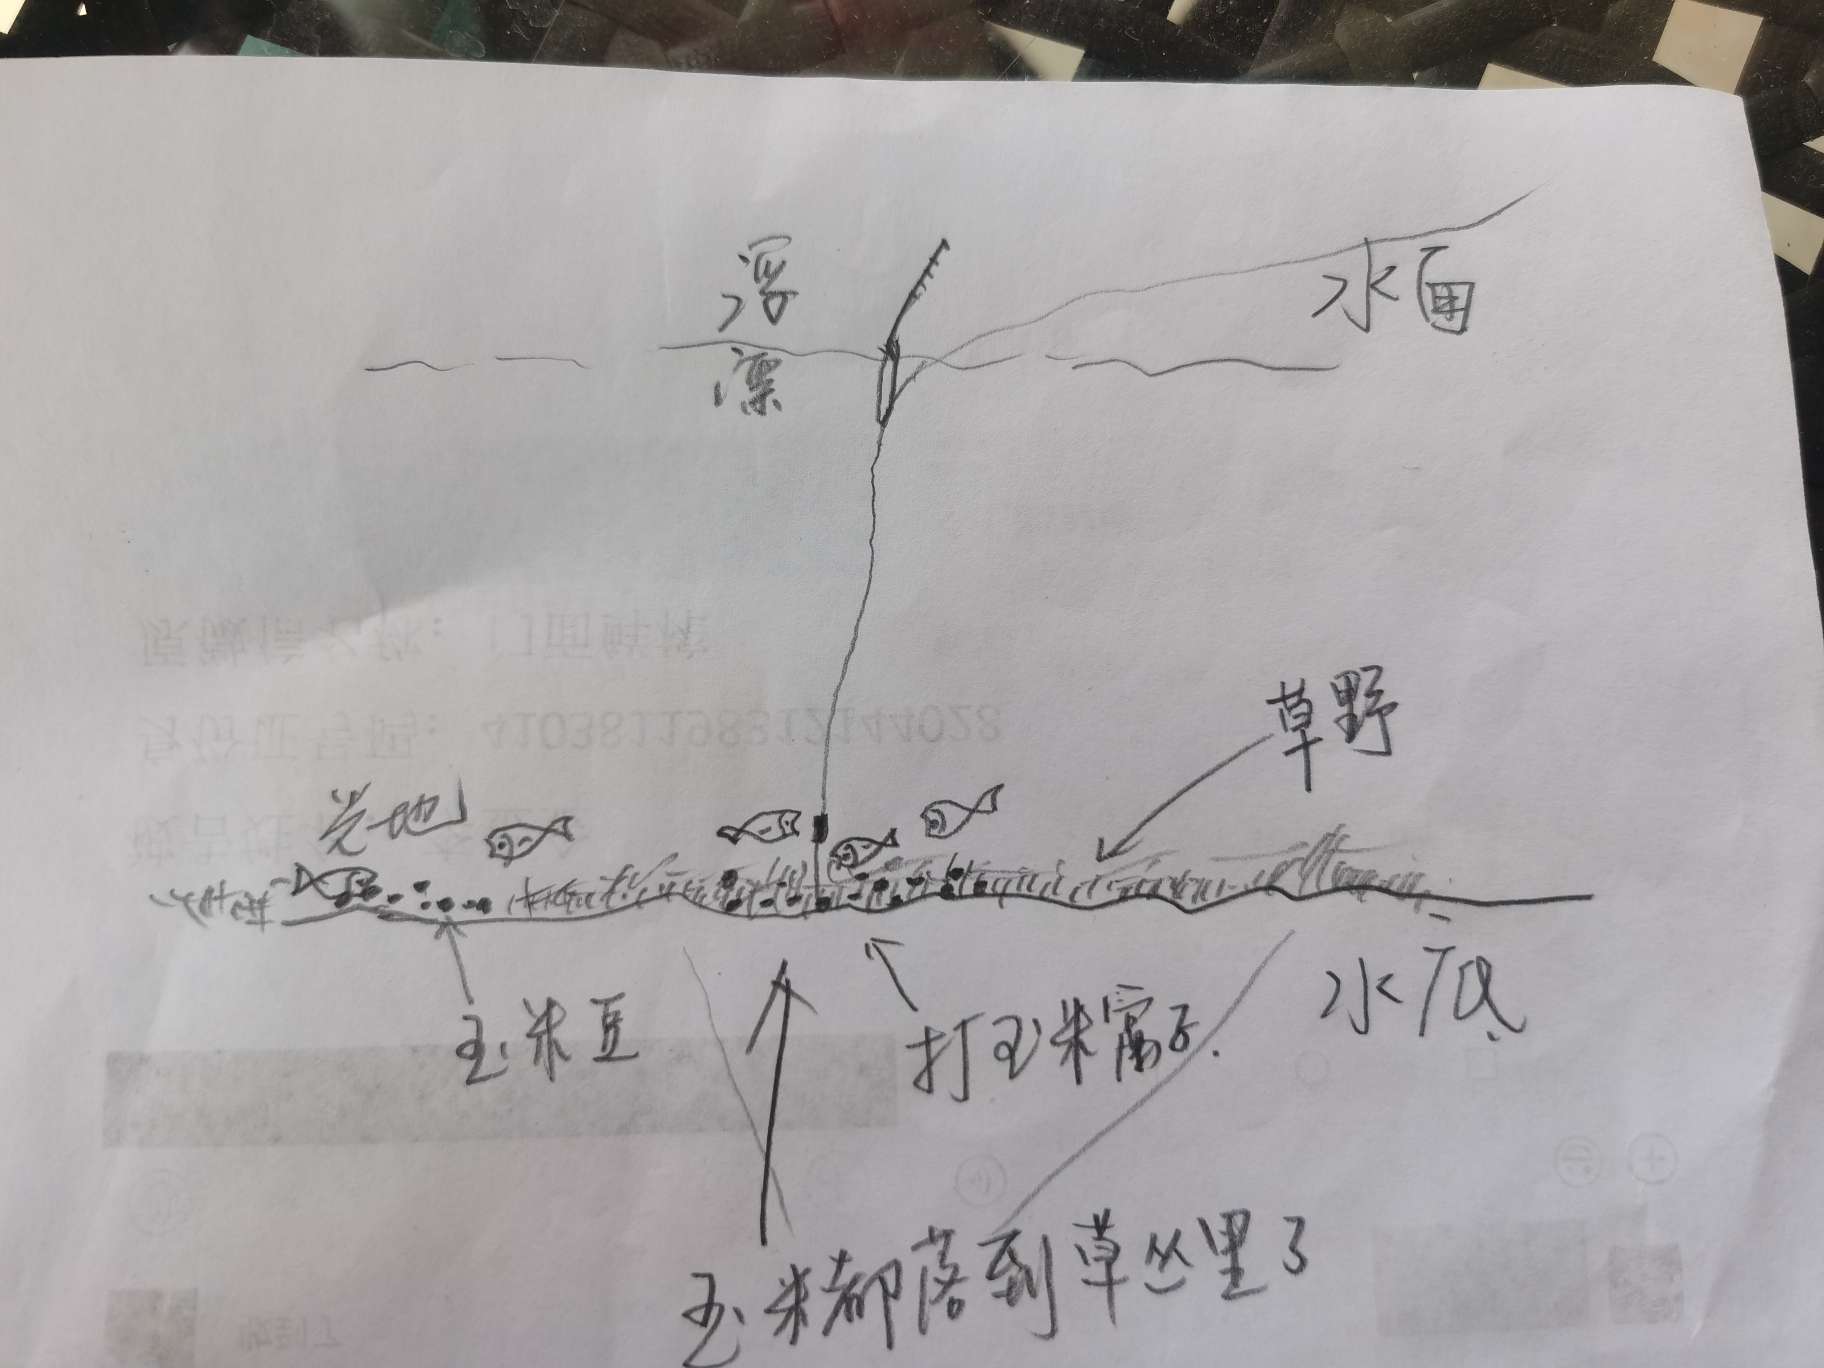 浮
漂
水面
草野
光地
玉米豆
打玉米窝子.
水底
玉米都落到草丛里了